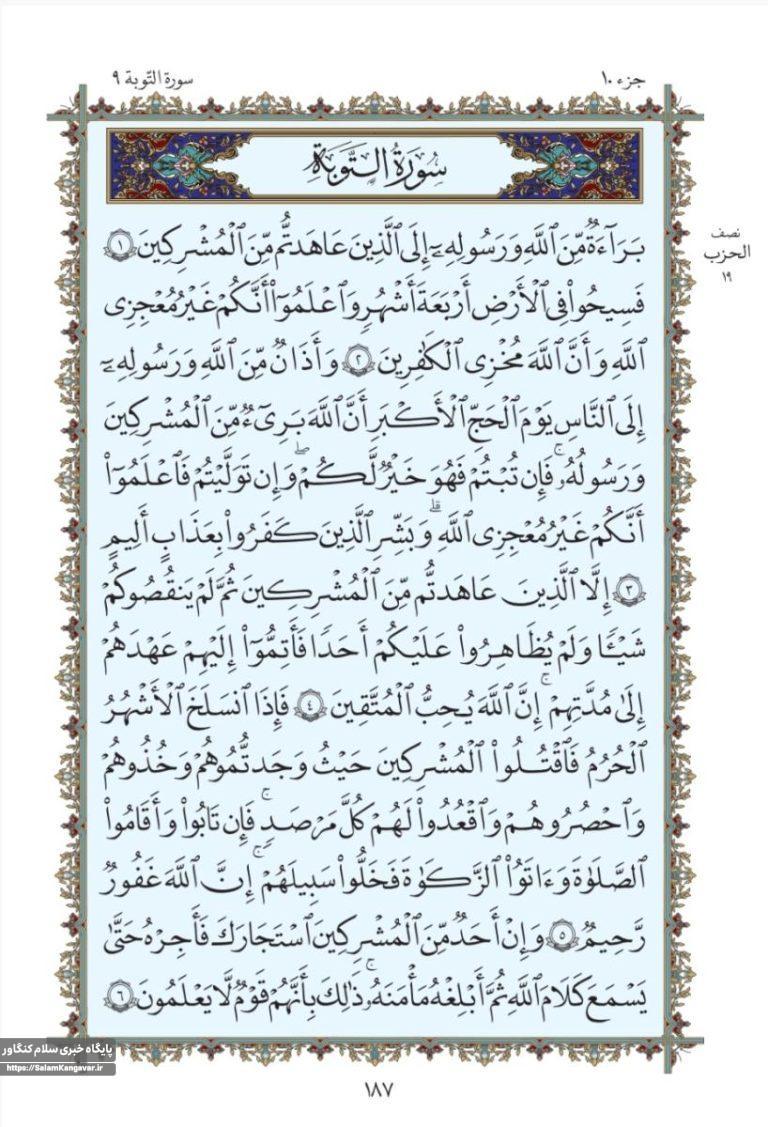 جزء ۱۰
سورة التّوبة ۹
سُورَةُ التَّوبَةِ
بَرَآءَةٌ مِّنَ ٱللَّهِ وَرَسُولِهِۦٓ إِلَى ٱلَّذِينَ عَاهَدتُّم مِّنَ ٱلْمُشْرِكِينَ ١
فَسِيحُوا۟ فِى ٱلْأَرْضِ أَرْبَعَةَ أَشْهُرٍ وَٱعْلَمُوٓا۟ أَنَّكُمْ غَيْرُ مُعْجِزِى
ٱللَّهِ وَأَنَّ ٱللَّهَ مُخْزِى ٱلْكَٰفِرِينَ ٢ وَأَذَانٌ مِّنَ ٱللَّهِ وَرَسُولِهِۦٓ
إِلَى ٱلنَّاسِ يَوْمَ ٱلْحَجِّ ٱلْأَكْبَرِ أَنَّ ٱللَّهَ بَرِىٓءٌ مِّنَ ٱلْمُشْرِكِينَ
وَرَسُولُهُۥ ۚ فَإِن تُبْتُمْ فَهُوَ خَيْرٌ لَّكُمْ ۖ وَإِن تَوَلَّيْتُمْ فَٱعْلَمُوٓا۟
أَنَّكُمْ غَيْرُ مُعْجِزِى ٱللَّهِ ۗ وَبَشِّرِ ٱلَّذِينَ كَفَرُوا۟ بِعَذَابٍ أَلِيمٍ
٣ إِلَّا ٱلَّذِينَ عَاهَدتُّم مِّنَ ٱلْمُشْرِكِينَ ثُمَّ لَمْ يَنقُصُوكُمْ
شَيْـًٔا وَلَمْ يُظَاهِرُوا۟ عَلَيْكُمْ أَحَدًا فَأَتِمُّوٓا۟ إِلَيْهِمْ عَهْدَهُمْ
إِلَىٰ مُدَّتِهِمْ ۚ إِنَّ ٱللَّهَ يُحِبُّ ٱلْمُتَّقِينَ ٤ فَإِذَا ٱنسَلَخَ ٱلْأَشْهُرُ
ٱلْحُرُمُ فَٱقْتُلُوا۟ ٱلْمُشْرِكِينَ حَيْثُ وَجَدتُّمُوهُمْ وَخُذُوهُمْ
وَٱحْصُرُوهُمْ وَٱقْعُدُوا۟ لَهُمْ كُلَّ مَرْصَدٍ ۚ فَإِن تَابُوا۟ وَأَقَامُوا۟
ٱلصَّلَوٰةَ وَءَاتَوُا۟ ٱلزَّكَوٰةَ فَخَلُّوا۟ سَبِيلَهُمْ ۚ إِنَّ ٱللَّهَ غَفُورٌ
رَّحِيمٌ ٥ وَإِنْ أَحَدٌ مِّنَ ٱلْمُشْرِكِينَ ٱسْتَجَارَكَ فَأَجِرْهُ حَتَّىٰ
يَسْمَعَ كَلَٰمَ ٱللَّهِ ثُمَّ أَبْلِغْهُ مَأْمَنَهُۥ ۚ ذَٰلِكَ بِأَنَّهُمْ قَوْمٌ لَّا يَعْلَمُونَ ٦
نصف
الحزب
۱۹
پایگاه خبری سلام کنگاور
https://SalamKangavar.ir
۱۸۷